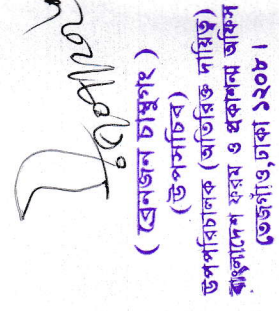 ( ব্রেনজন চাম্বুগং )
(উপসচিব)
উপপরিচালক (অতিরিক্ত দায়িত্ব)
বাংলাদেশ ফরম ও প্রকাশনা অফিস
তেজগাঁও, ঢাকা ১২০৮।